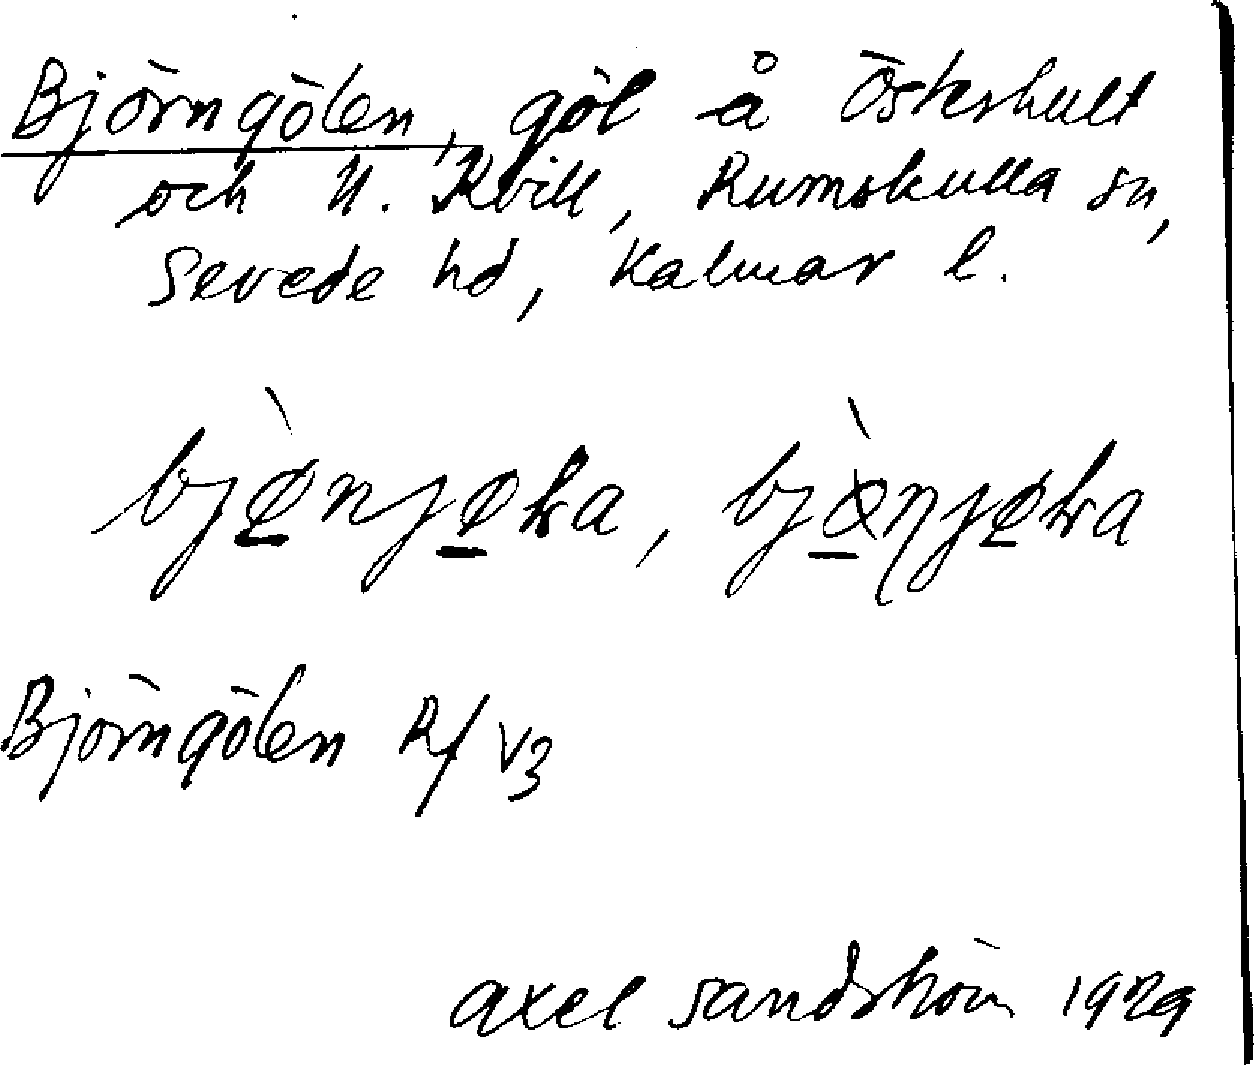 Björngölen, göl å Österhult
och N. Kvill, Rumskulla sn,
Sevede hd, Kalmar l.
Björngölen Rf V3
Axel Sandström 1929